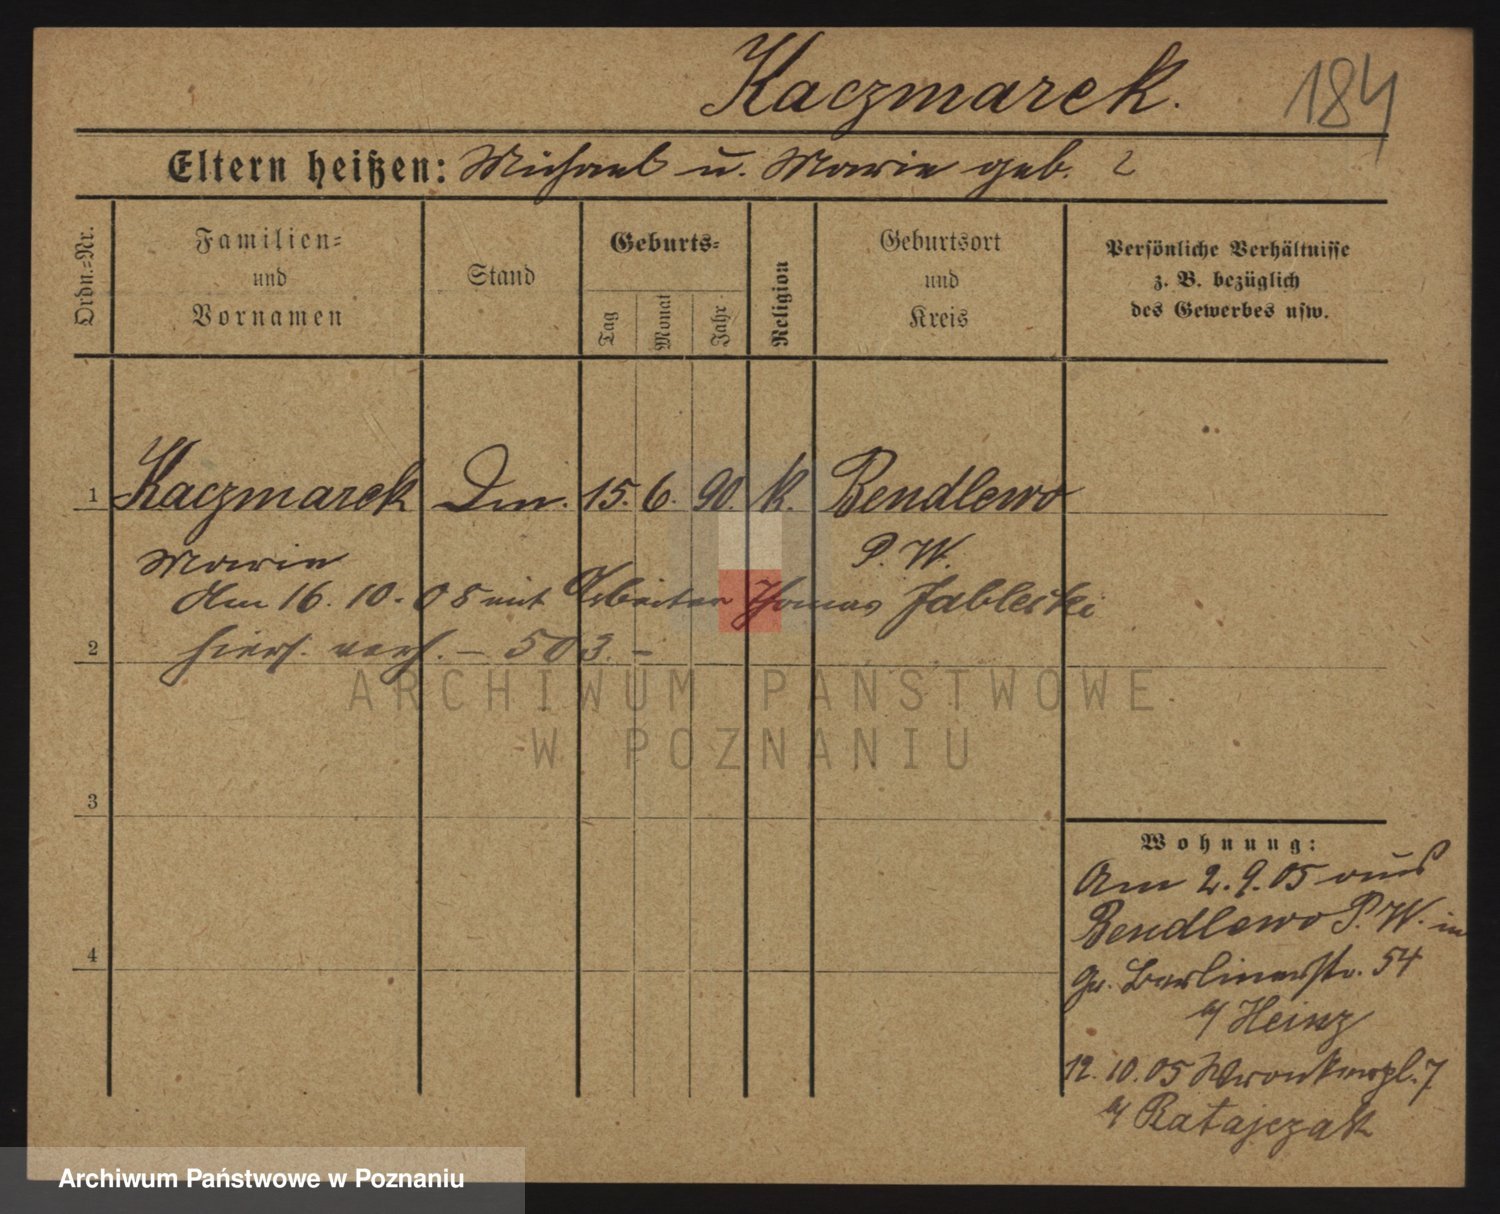 Kaczmarek. 184
Eltern heißen: Michael u. Marie geb. ?
Ordn.-Nr.
Familien-
und
Vornamen
Stand
Geburts-
Tag
Monat
Jahr
Religion
Geburtsort
und
Kreis
Persönliche Verhältnisse
z. B. bezüglich
des Gewerbes usw.
1 Kaczmarek Dm. 15. 6. 90. k. Bendlewo
Marie P. W.
Am 16. 10. 08 mit Arbeiter Thomas Jableski
2 hiers. verh. – 503. –
3
4
Wohnung:
Am 2. 9. 05 aus
Bendlewo P. W. in
Gr. Berlinerstr. 54
b/ Heinz
12. 10. 05 Wronkerpl. 7
b/ Ratajczak
ARCHIWUM PAŃSTWOWE
W POZNANIU
Archiwum Państwowe w Poznaniu